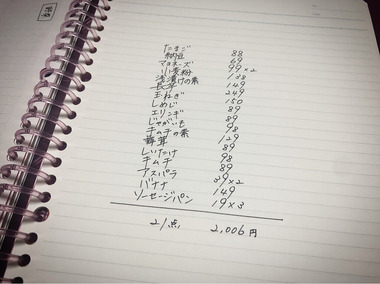 たまご 88
納豆 69
マヨネーズ 99×2
小麦粉 138
浅漬けの素 149
長芋 249
玉ねぎ 150
しめじ 89
エリンギ 89
じゃがいも 98
キムチの素 129
舞茸 89
しいたけ 98
キムチ 89
アスパラ 39×2
バナナ 149
ソーセージパン 19×3
21点 2,006円